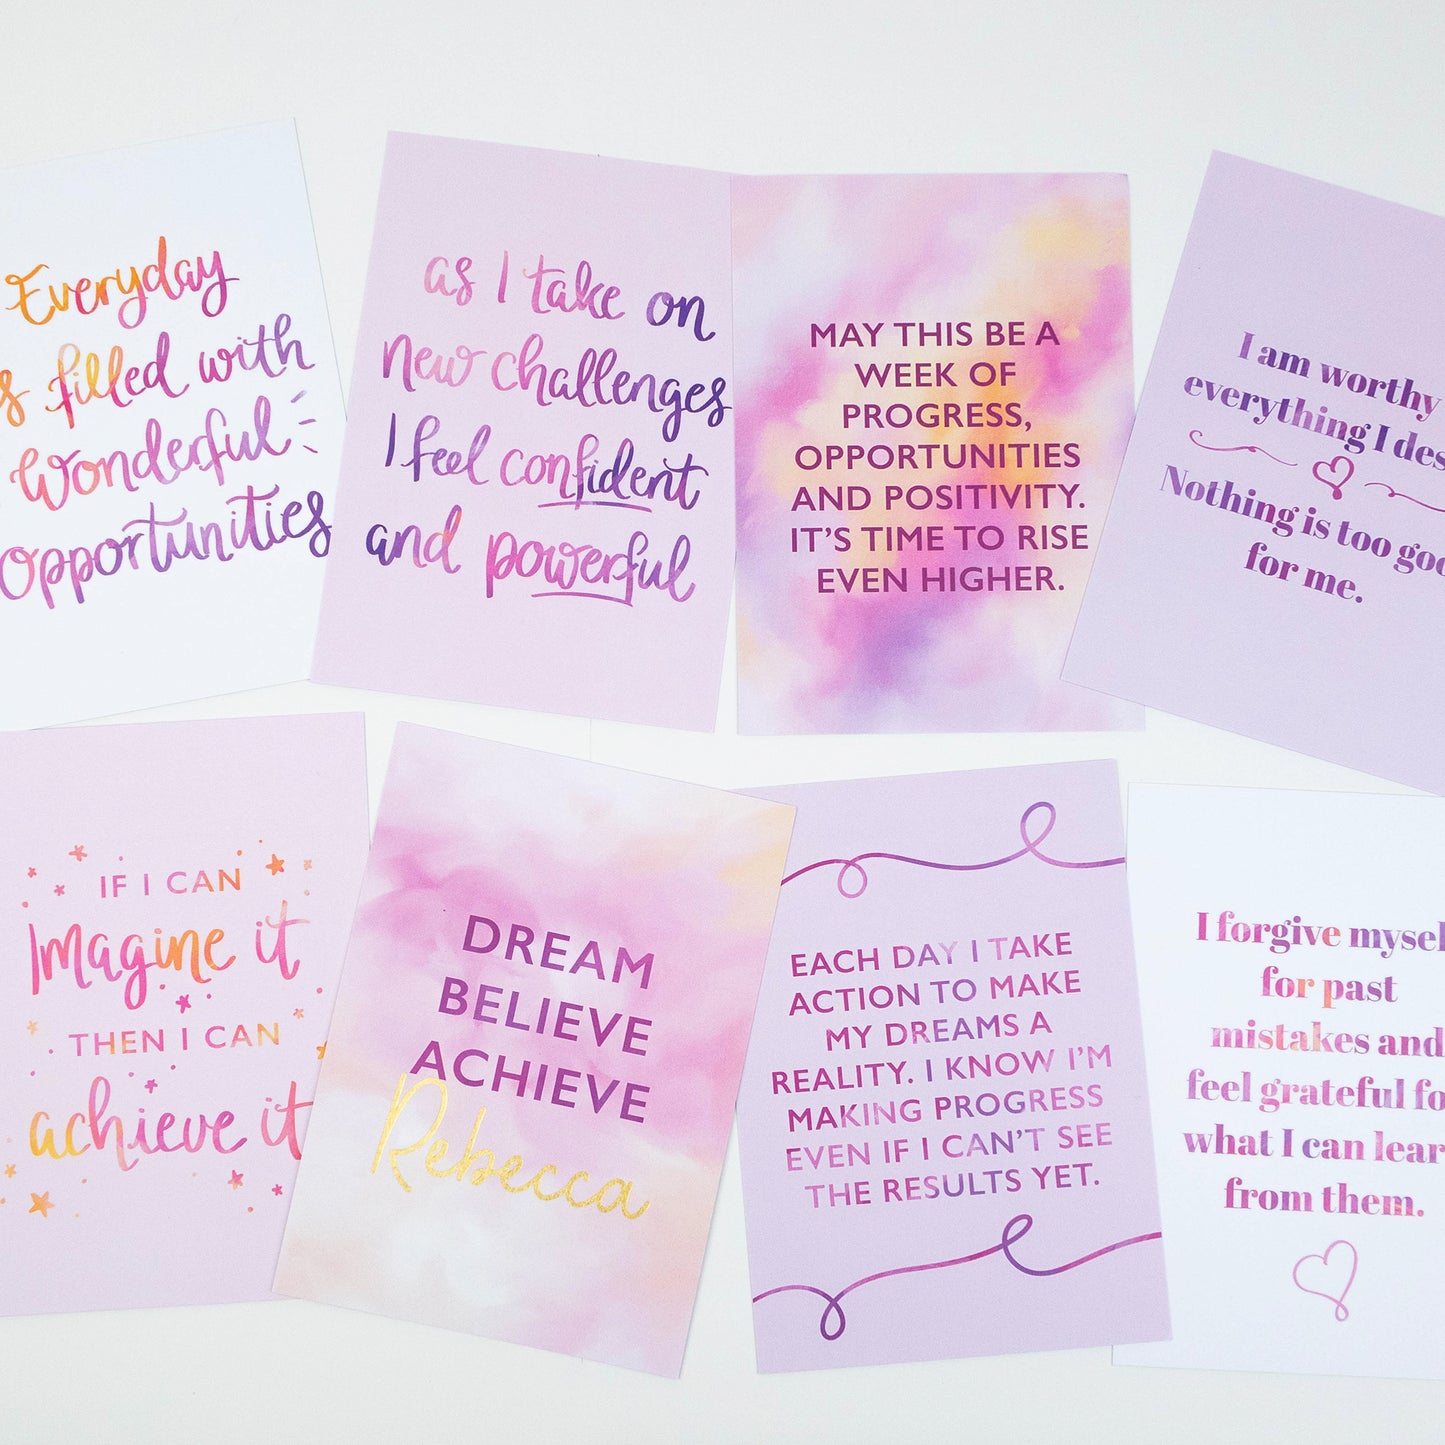 Everyday
filled with
Wonderful
opportunities
as I take on
new challenges
I feel confident
and powerful
MAY THIS BE A
WEEK OF
PROGRESS,
OPPORTUNITIES
AND POSITIVITY.
IT'S TIME TO RISE
EVEN HIGHER.
I am worthy
everything I des
Nothing is too goo
for me.
IF I CAN
Imagine it
THEN I CAN
achieve it
DREAM
BELIEVE
ACHIEVE
Rebecca
EACH DAY I TAKE
ACTION TO MAKE
MY DREAMS A
REALITY. I KNOW I'M
MAKING PROGRESS
EVEN IF I CAN'T SEE
THE RESULTS YET.
I forgive mysel
for past
mistakes and
feel grateful fo
what I can lear
from them.